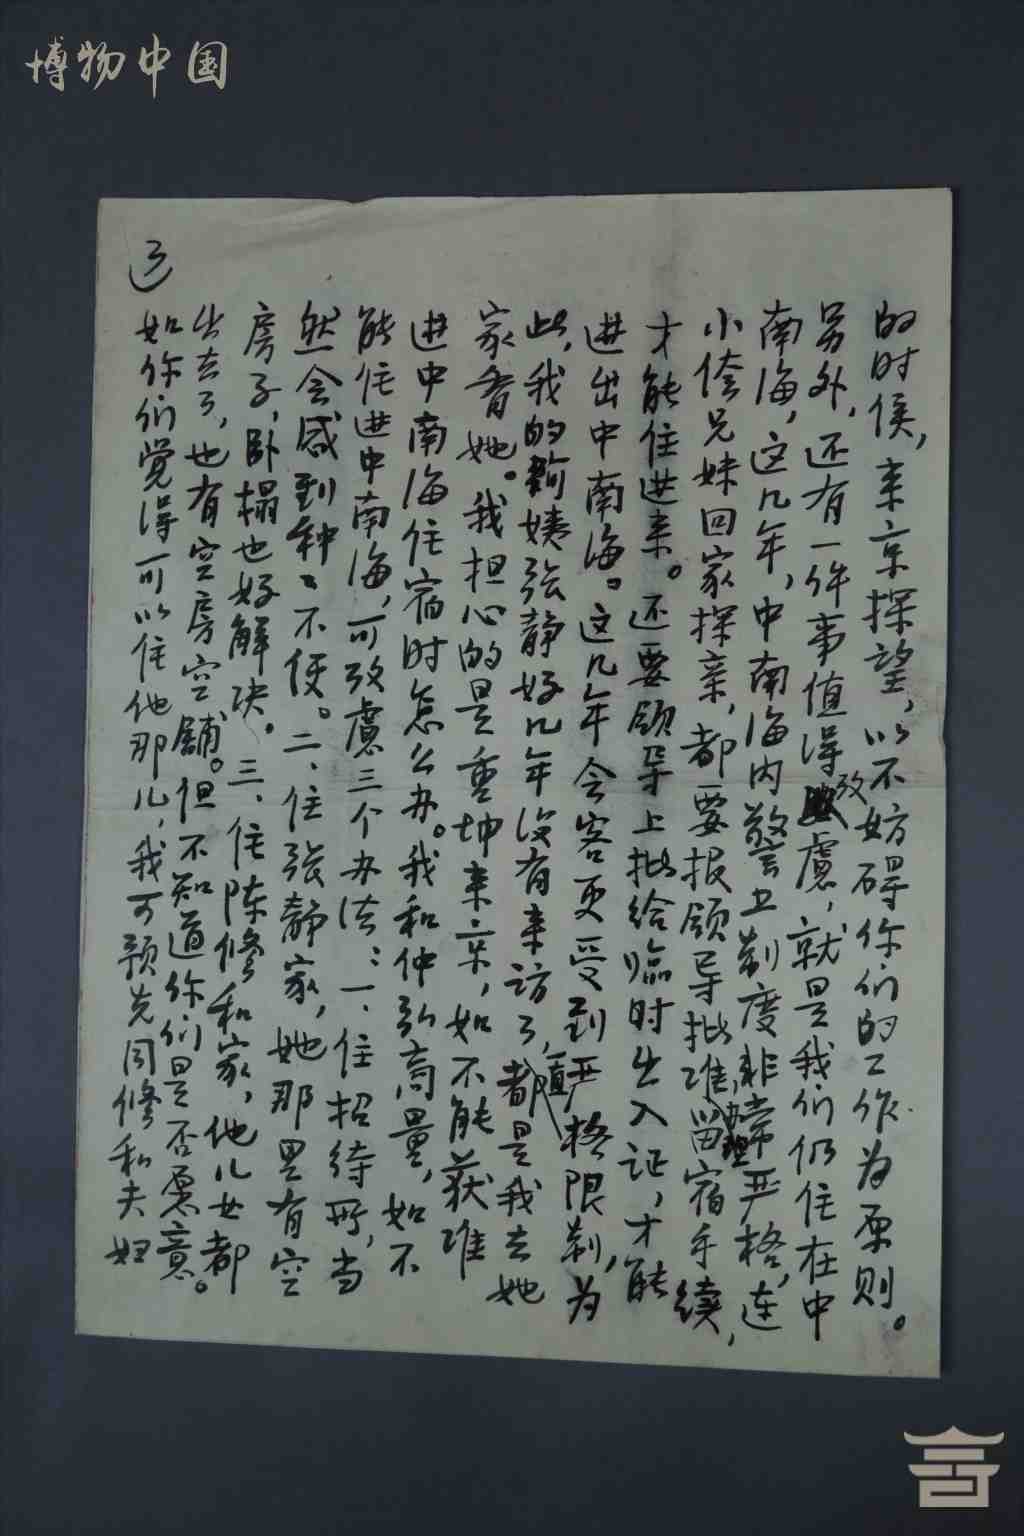 博物中国
的时侯，来京探望，以不妨碍你们的工作为原则。
另外，还有一件事值得攷慮，就是我们仍住在中
南海，这几年，中南海内警卫制度非常严格，连
小侉兄妹回家探亲，都要报领导批准，办理留宿手续，
才能住进来。还要领导上批给临时出入证，才能
进出中南海。这几年会客更受到严格限制，为
此，我的姨张静好几年没有来访了，一直都是我去她
家看她。我担心的是重坤来京，如不能获准
进中南海住宿时怎么办。我和仲弘商量，如不
能住进中南海，可攷慮三个办法：一、住招待所，当
然会感到种々不便。二、住张静家，她那里有空
房子，卧榻也好解决。三、住陈修和家，他儿女都
出去了，也有空房空舖。但不知道你们是否愿意。
如你们觉得可以住他那儿，我可预先同修和夫妇
三